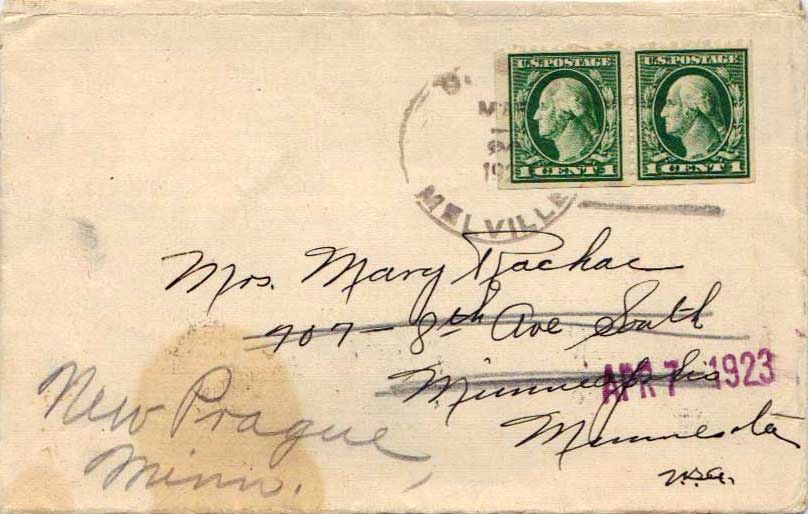 U.S. POSTAGE U.S. POSTAGE
1 CENT 1 1 CENT 1
MELVILLE
Mrs. Mary Rachac
907-8th Ave South
Minneapolis
Minnesota
U.S.A.
APR 7 1923
New Prague,
Minn.